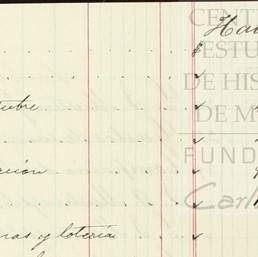 CENT
ESTU
DE HIS
DE M
FUND
Carl
$
tubre
ción
nas y lotería